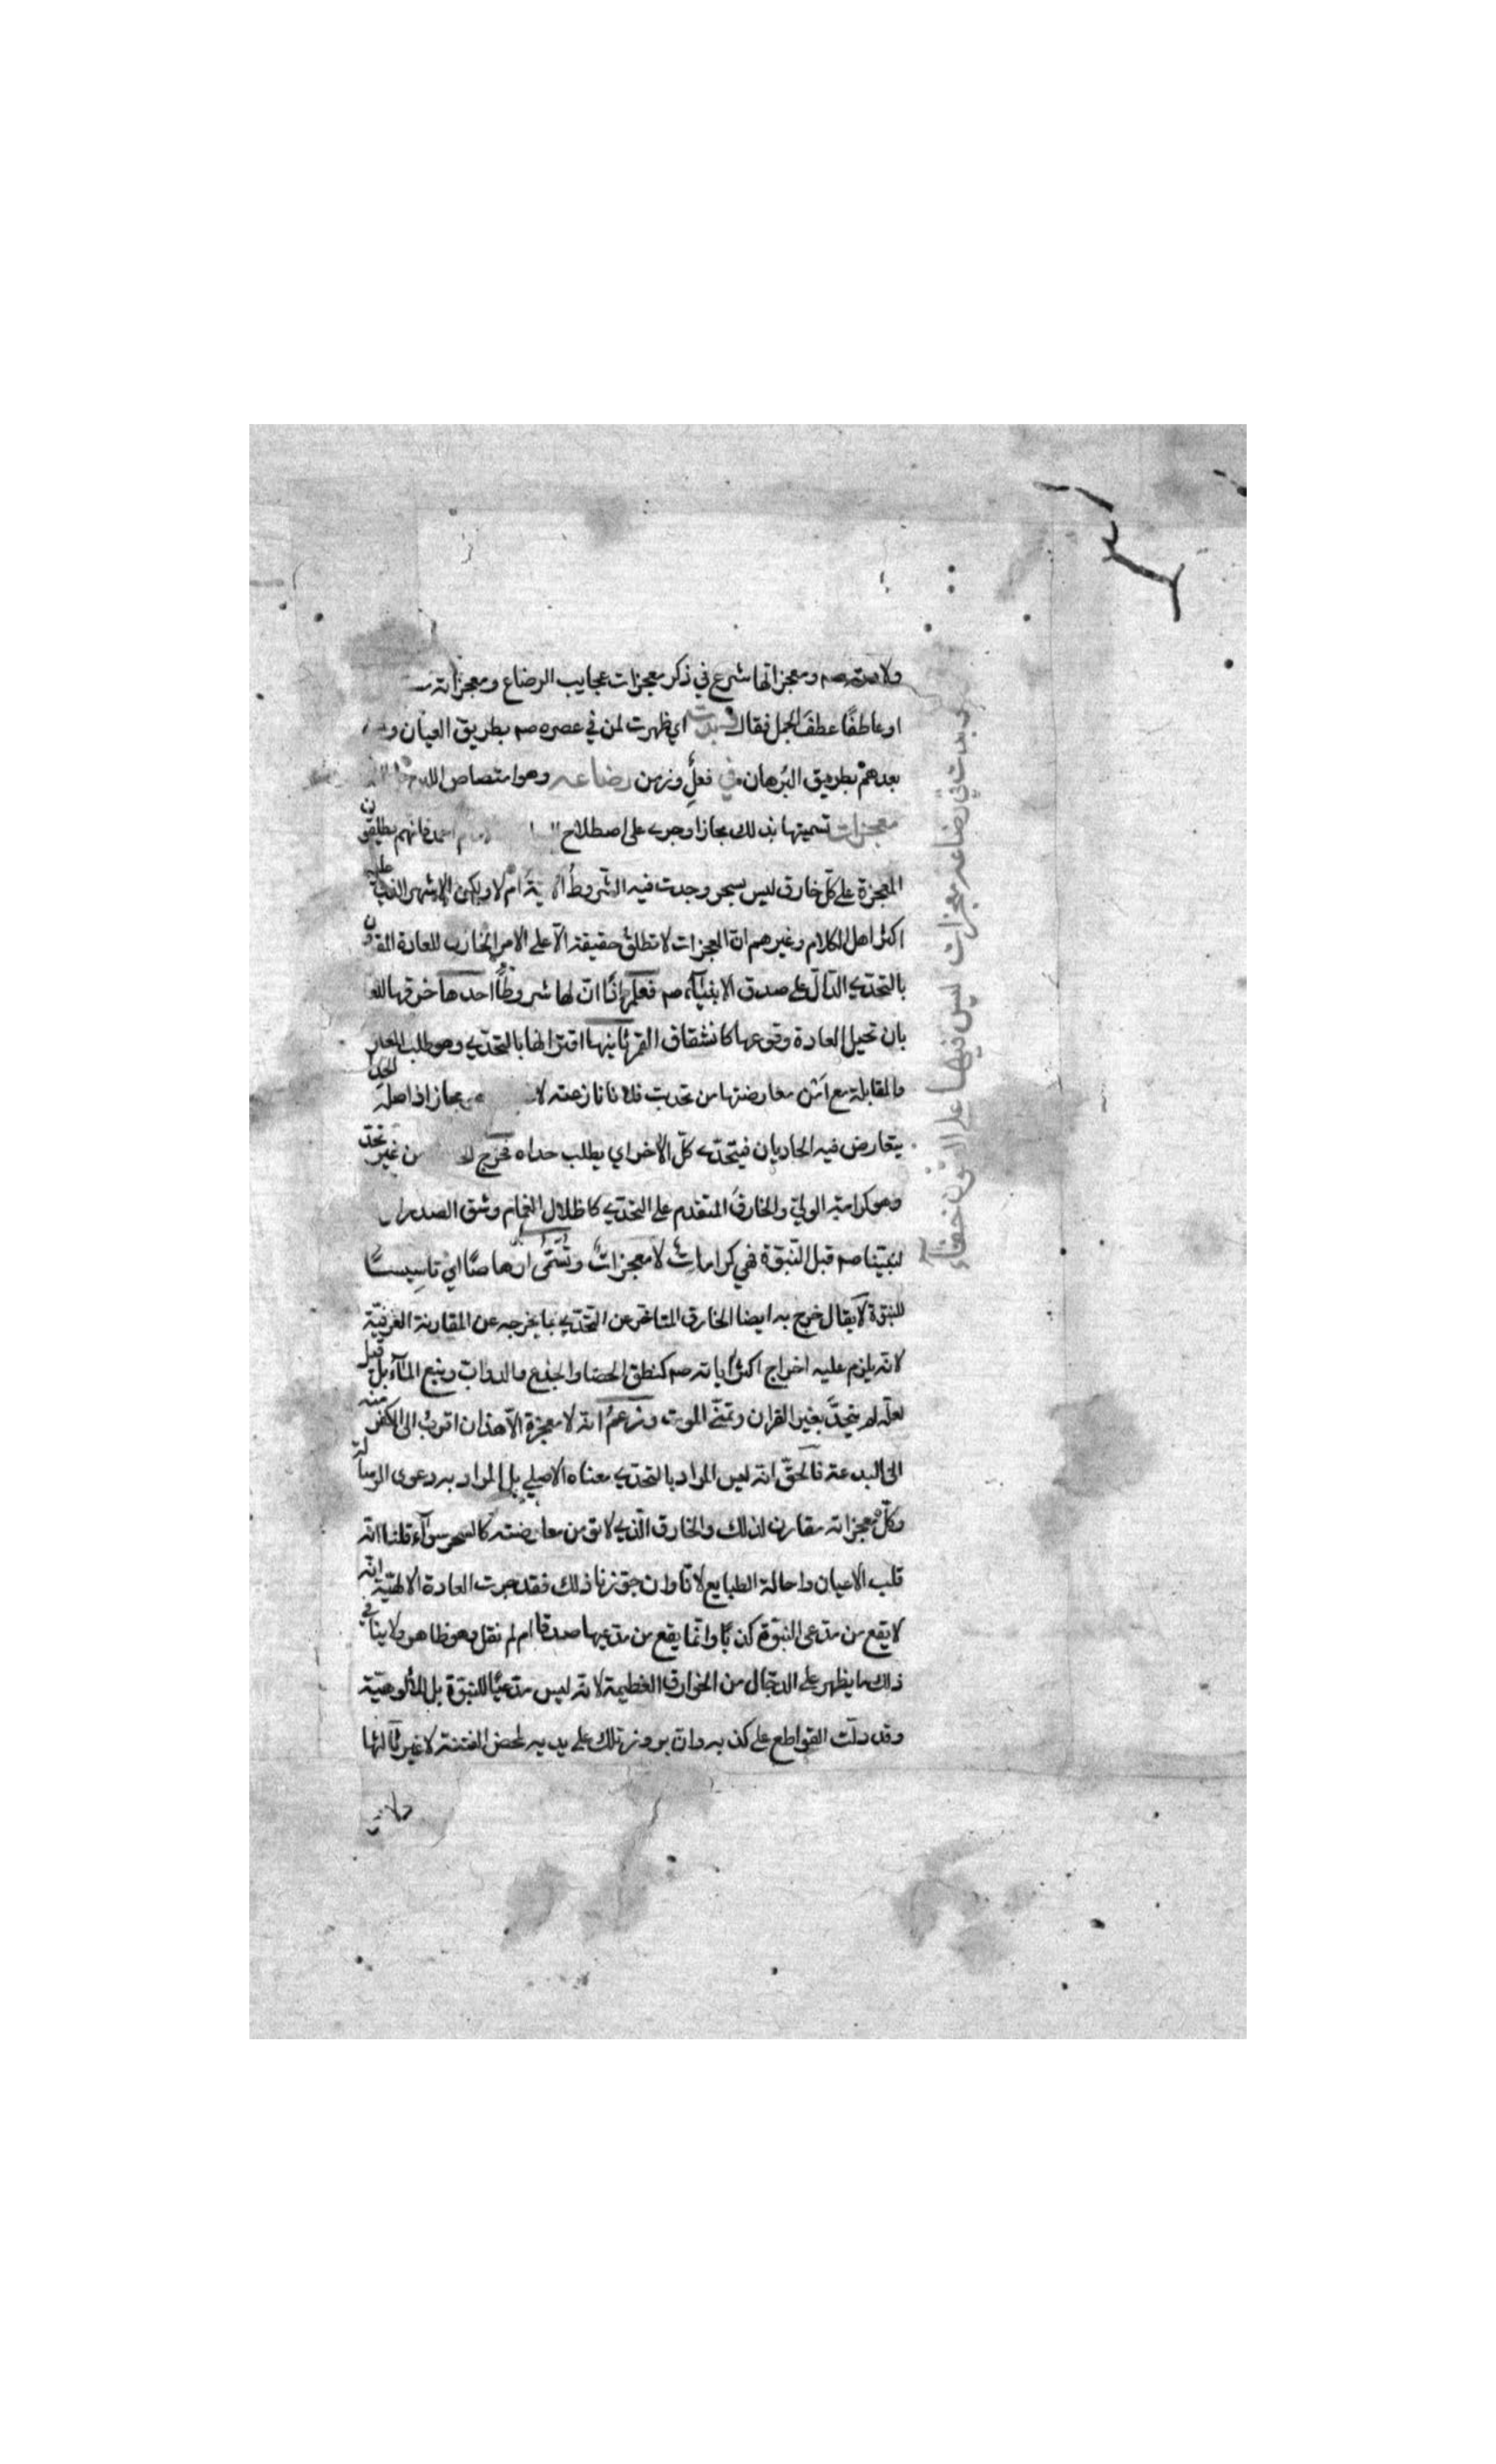 ولادته صم ومعجزاتها شرع في ذكر معجزات عجايب الرضاع ومعجزاته
او عاطفًا عطف الجمل فقال وبدت اي ظهرت لمن في عصره صم بطريق العيان و
بعدهم بطريق البرهان في فعل وزمن رضاعه وهو امتصاص اللبن
معجزات تسميتها بذلك مجازا وجرى على اصطلاح احمد فانهم يطلقون
المعجزة على كل خارق ليس بسحر وجدت فيه الشروط الاتية ام لا ولكن الاشهر الذي عليه
اكثر اهل الكلام وغيرهم ان المعجزات لا تطلق حقيقة الا على الامر الخارق للعادة المقرون
بالتحدي الدال على صدق الانبياء صم فعلم انا ان لها شروطًا احدها خرقها للعا
بان تحيل العادة وقوعها كانشقاق القمر ثانيها اقترانها بالتحدي وهو طلب المعارضة
والمقابلة مع امن معارضتها من تحديت فلانا نازعته لا مجاز اذ اصله الحدا
يتعارض فيه الحاديان فيتحدى كل الاخر اي يطلب حداه فخرج الخارق من غير تحد
وهو كرامة الولي والخارق المتقدم على التحدي كاظلال الغمام وشق الصدر
لنبينا صم قبل النبوة فهي كرامات لا معجزات وتسمى ارهاصًا اي تاسيسًا
للنبوة لا يقال خرج به ايضا الخارق المتاخر عن التحدي بما يخرجه عن المقارنة العرفية
لانه يلزم عليه اخراج اكثر اياته صم كنطق الحصا والجذع والدواب ونبع الماء بل قيل
لعله لم يتحدَّ بغير القران وتمني الموت وزعم انه لا معجزة الا هذان اقرب الى الكفر منه
الى البدعة فالحق انه ليس المراد بالتحدي معناه الاصلي بل المراد به دعوى الرسالة
وكل معجزاته مقارن لذلك والخارق الذي لا تؤمن معارضته كالسحر سواء قلنا انه
قلب الاعيان واحالة الطبايع لانا وان جوزنا ذلك فقد جرت العادة الالهية انه
لا يقع من مدعى النبوة كذبًا وانما يقع من مدعيها صدقا ام لم نقل وهو ظاهر ولا ينافي
ذلك ما يظهر على الدجال من الخوارق العظيمة لانه ليس مدعيًا للنبوة بل للالوهية
وقد دلت القواطع على كذبه وان بروز تلك على يديه لمحض الفتنة لا غير ثالثها
دلا
وبدت في رضاعه معجزات ليس فيها على العيون خفاء